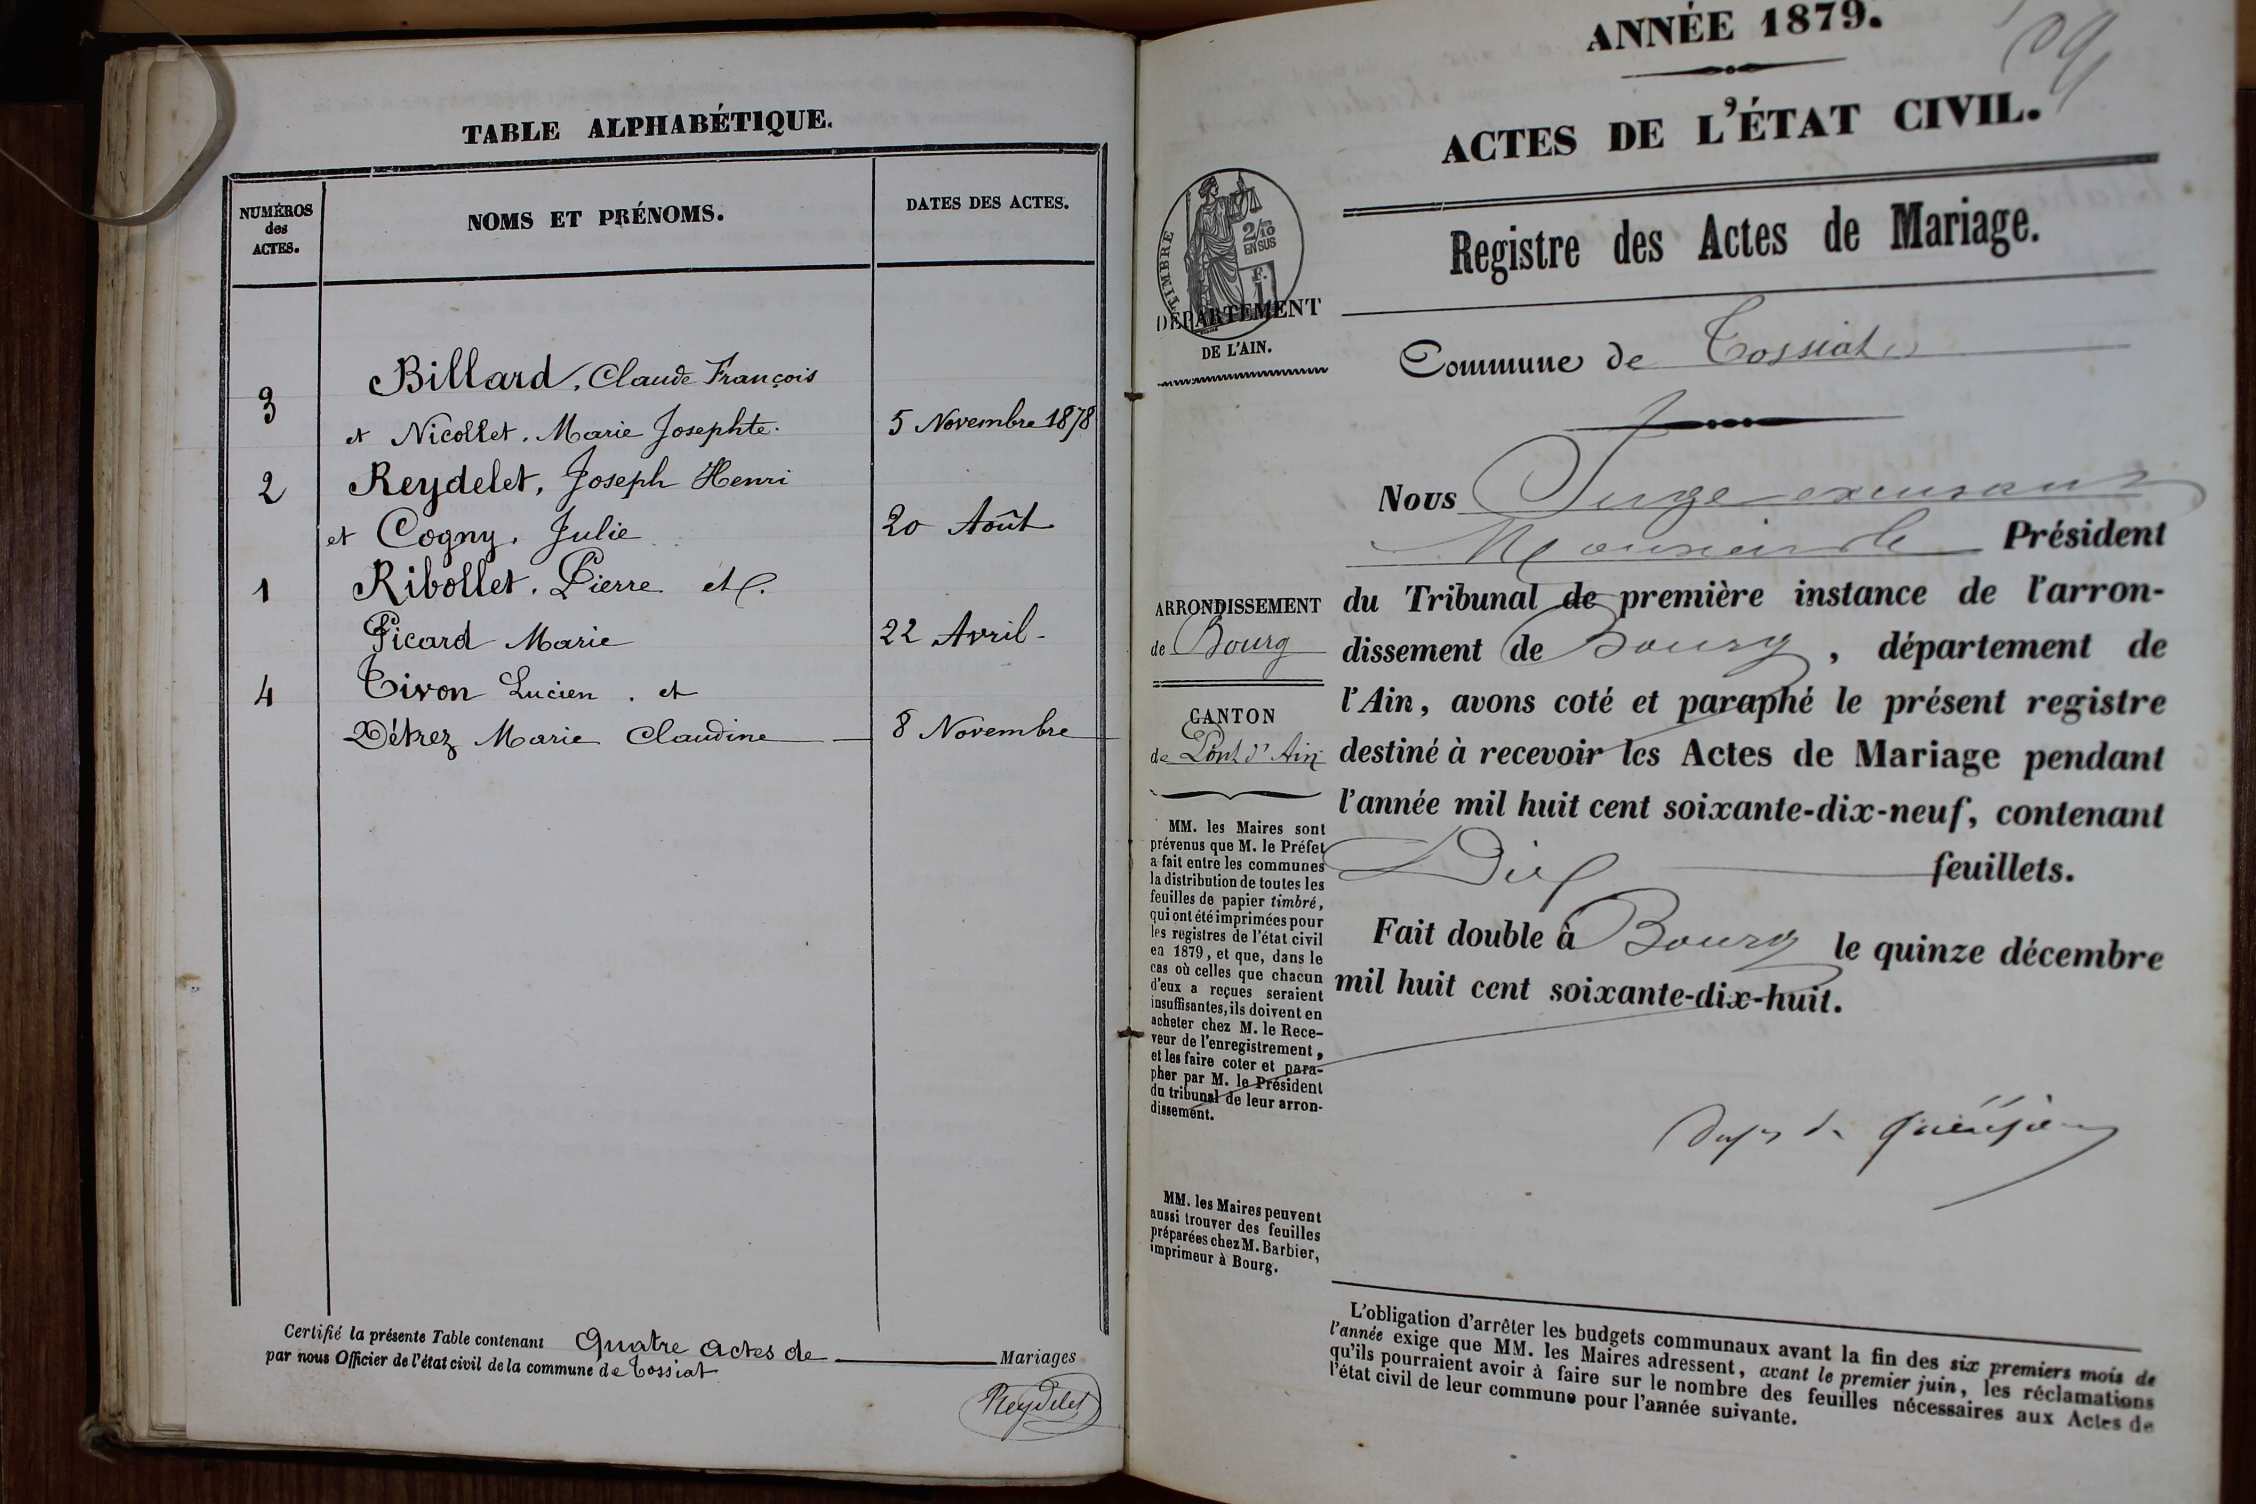 TABLE ALPHABÉTIQUE.
NUMÉROS
des
ACTES.
NOMS ET PRÉNOMS.
DATES DES ACTES.
Billard, Claude François
3
et Nicollet, Marie Josephte.
5 Novembre 1878
2
Reydelet, Joseph Henri
et Cogny, Julie
20 Août
1
Ribollet, Pierre et
Picard Marie
22 Avril
4
Tivon Lucien, et
Détrez Marie Claudine
8 Novembre
Certifié la présente Table contenant Quatre actes de Mariages
par nous Officier de l'état civil de la commune de Tossiat
Reydelet
ANNÉE 1879.
ACTES DE L'ÉTAT CIVIL.
Registre des Actes de Mariage.
TIMBRE
2/10
EN SUS
f.
1
DÉPARTEMENT
DE L'AIN.
Commune de Tossiat
Nous Juge excusant
Monsieur le Président
du Tribunal de première instance de l'arron-
dissement de Bourg, département de
l'Ain, avons coté et paraphé le présent registre
destiné à recevoir les Actes de Mariage pendant
l'année mil huit cent soixante-dix-neuf, contenant
Dix feuillets.
Fait double à Bourg le quinze décembre
mil huit cent soixante-dix-huit.
ARRONDISSEMENT
de Bourg
CANTON
de Pont d'Ain
MM. les Maires sont
prévenus que M. le Préfet
a fait entre les communes
la distribution de toutes les
feuilles de papier timbré,
qui ont été imprimées pour
les registres de l'état civil
en 1879, et que, dans le
cas où celles que chacun
d'eux a reçues seraient
insuffisantes, ils doivent en
acheter chez M. le Rece-
veur de l'enregistrement,
et les faire coter et para-
pher par M. le Président
du tribunal de leur arron-
dissement.
MM. les Maires peuvent
aussi trouver des feuilles
préparées chez M. Barbier,
imprimeur à Bourg.
L'obligation d'arrêter les budgets communaux avant la fin des six premiers mois de
l'année exige que MM. les Maires adressent, avant le premier juin, les réclamations
qu'ils pourraient avoir à faire sur le nombre des feuilles nécessaires aux Actes de
l'état civil de leur commune pour l'année suivante.